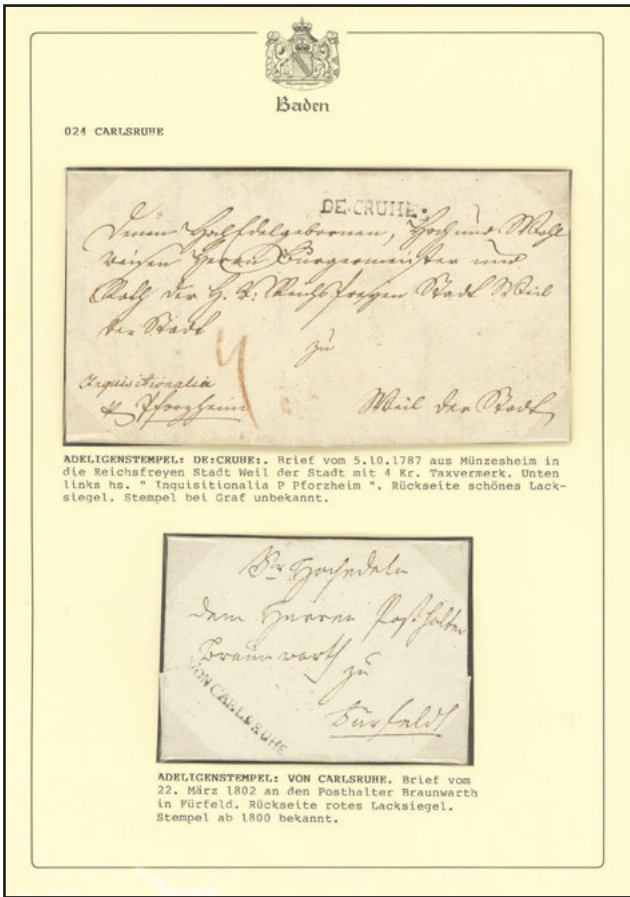 Baden
024 CARLSRUHE
DE:CRUHE:
Denen HochEdelgebornen, Hoch und Wohl
weisen Herrn Burgermeister und
Rath der H. R: Reichsfreyen Stadt Weil
der Stadt
zu
4
Inquisitionalia
p Pforzheim
Weil der Stadt
ADELIGENSTEMPEL: DE:CRUHE:. Brief vom 5.10.1787 aus Münzesheim in
die Reichsfreyen Stadt Weil der Stadt mit 4 Kr. Taxvermerk. Unten
links hs. " Inquisitionalia P Pforzheim ". Rückseite schönes Lack-
siegel. Stempel bei Graf unbekannt.
Hochedeln
dem Herren Posthalter
Braunwarth
zu
VON CARLSRUHE
Fürfeldt
ADELIGENSTEMPEL: VON CARLSRUHE. Brief vom
22. März 1802 an den Posthalter Braunwarth
in Fürfeld. Rückseite rotes Lacksiegel.
Stempel ab 1800 bekannt.